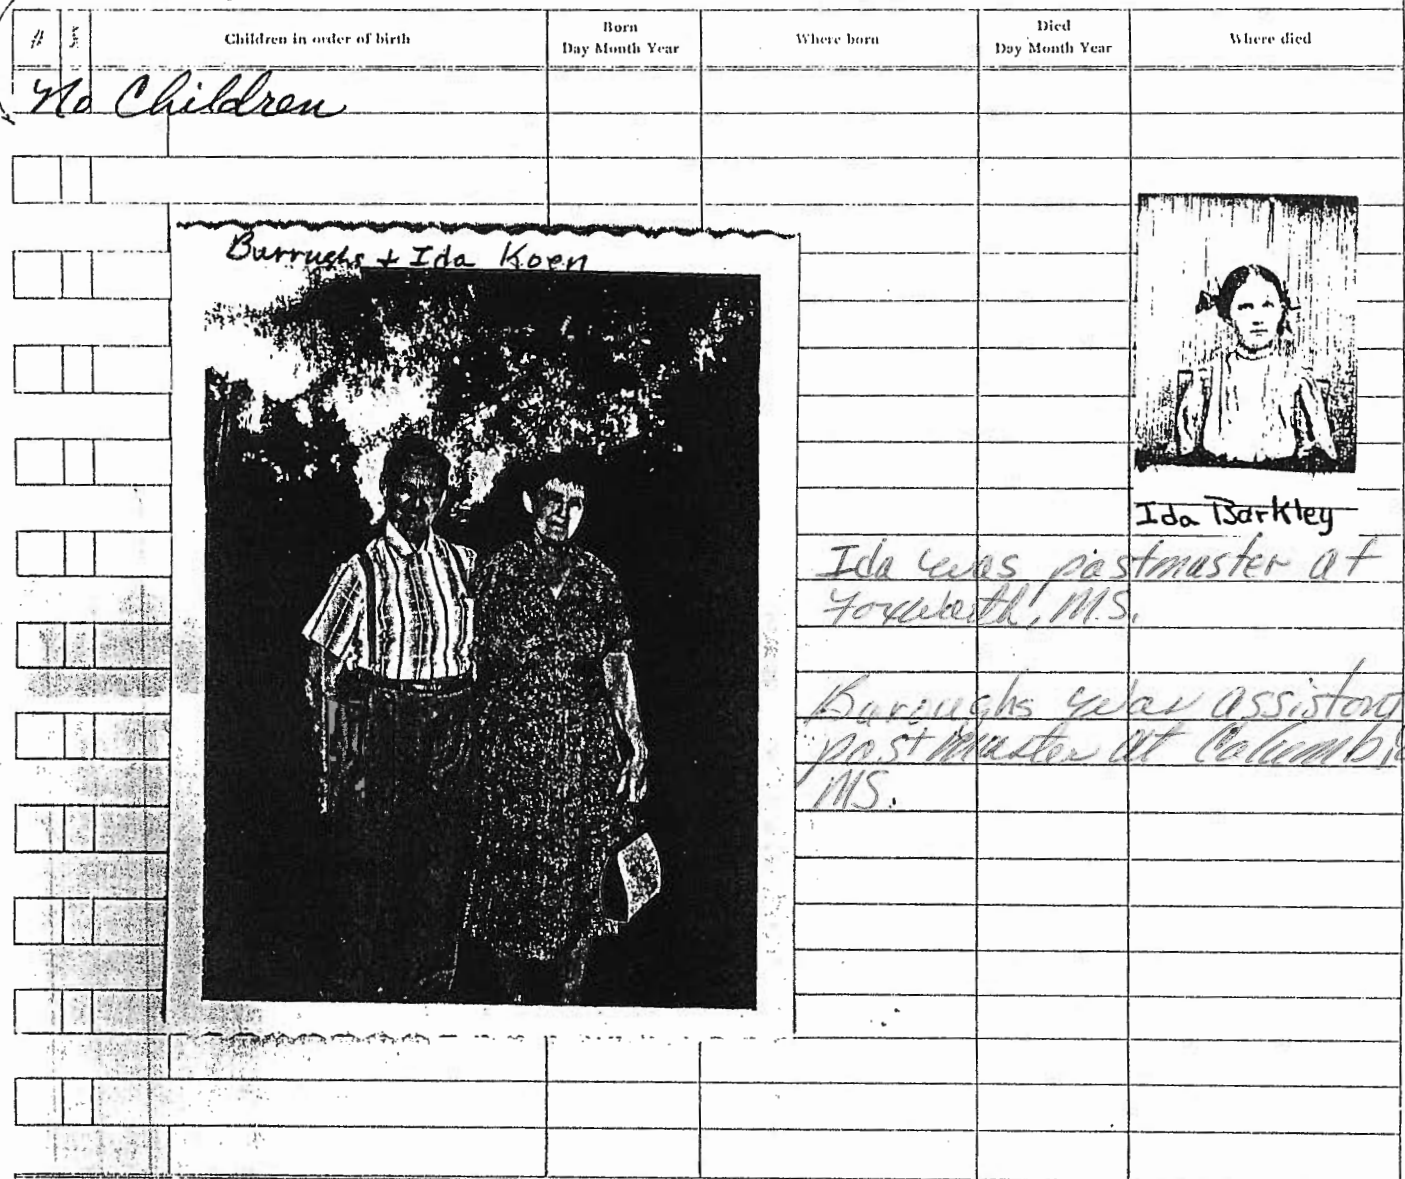 #
Children in order of birth
Born
Day Month Year
Where born
Died
Day Month Year
Where died
No Children
Burrughs + Ida Koen
Ida Barkley
Ida was postmaster at
Foxworth, MS.
Buroughs was assistant
postmaster at Columbia
MS.